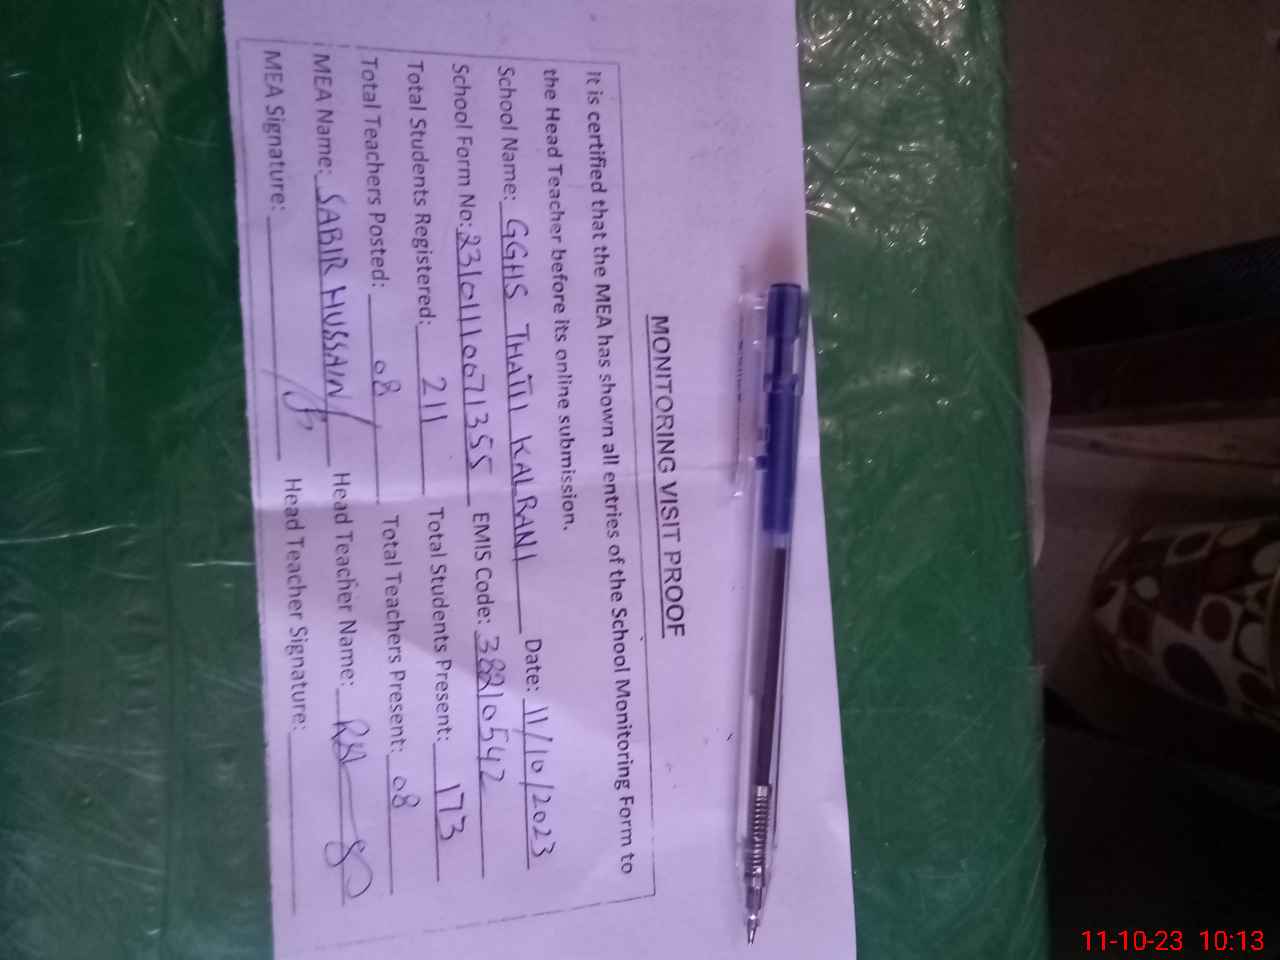 MONITORING VISIT PROOF
It is certified that the MEA has shown all entries of the School Monitoring Form to
the Head Teacher before its online submission.
School Name: GGHS THATTI KALRANI Date: 11/10/2023
School Form No: 23101110071355 EMIS Code: 38210542
Total Students Registered: 211 Total Students Present: 173
Total Teachers Posted: 08 Total Teachers Present: 08
MEA Name: SABIR HUSSAIN Head Teacher Name:
MEA Signature: Head Teacher Signature:
11-10-23 10:13